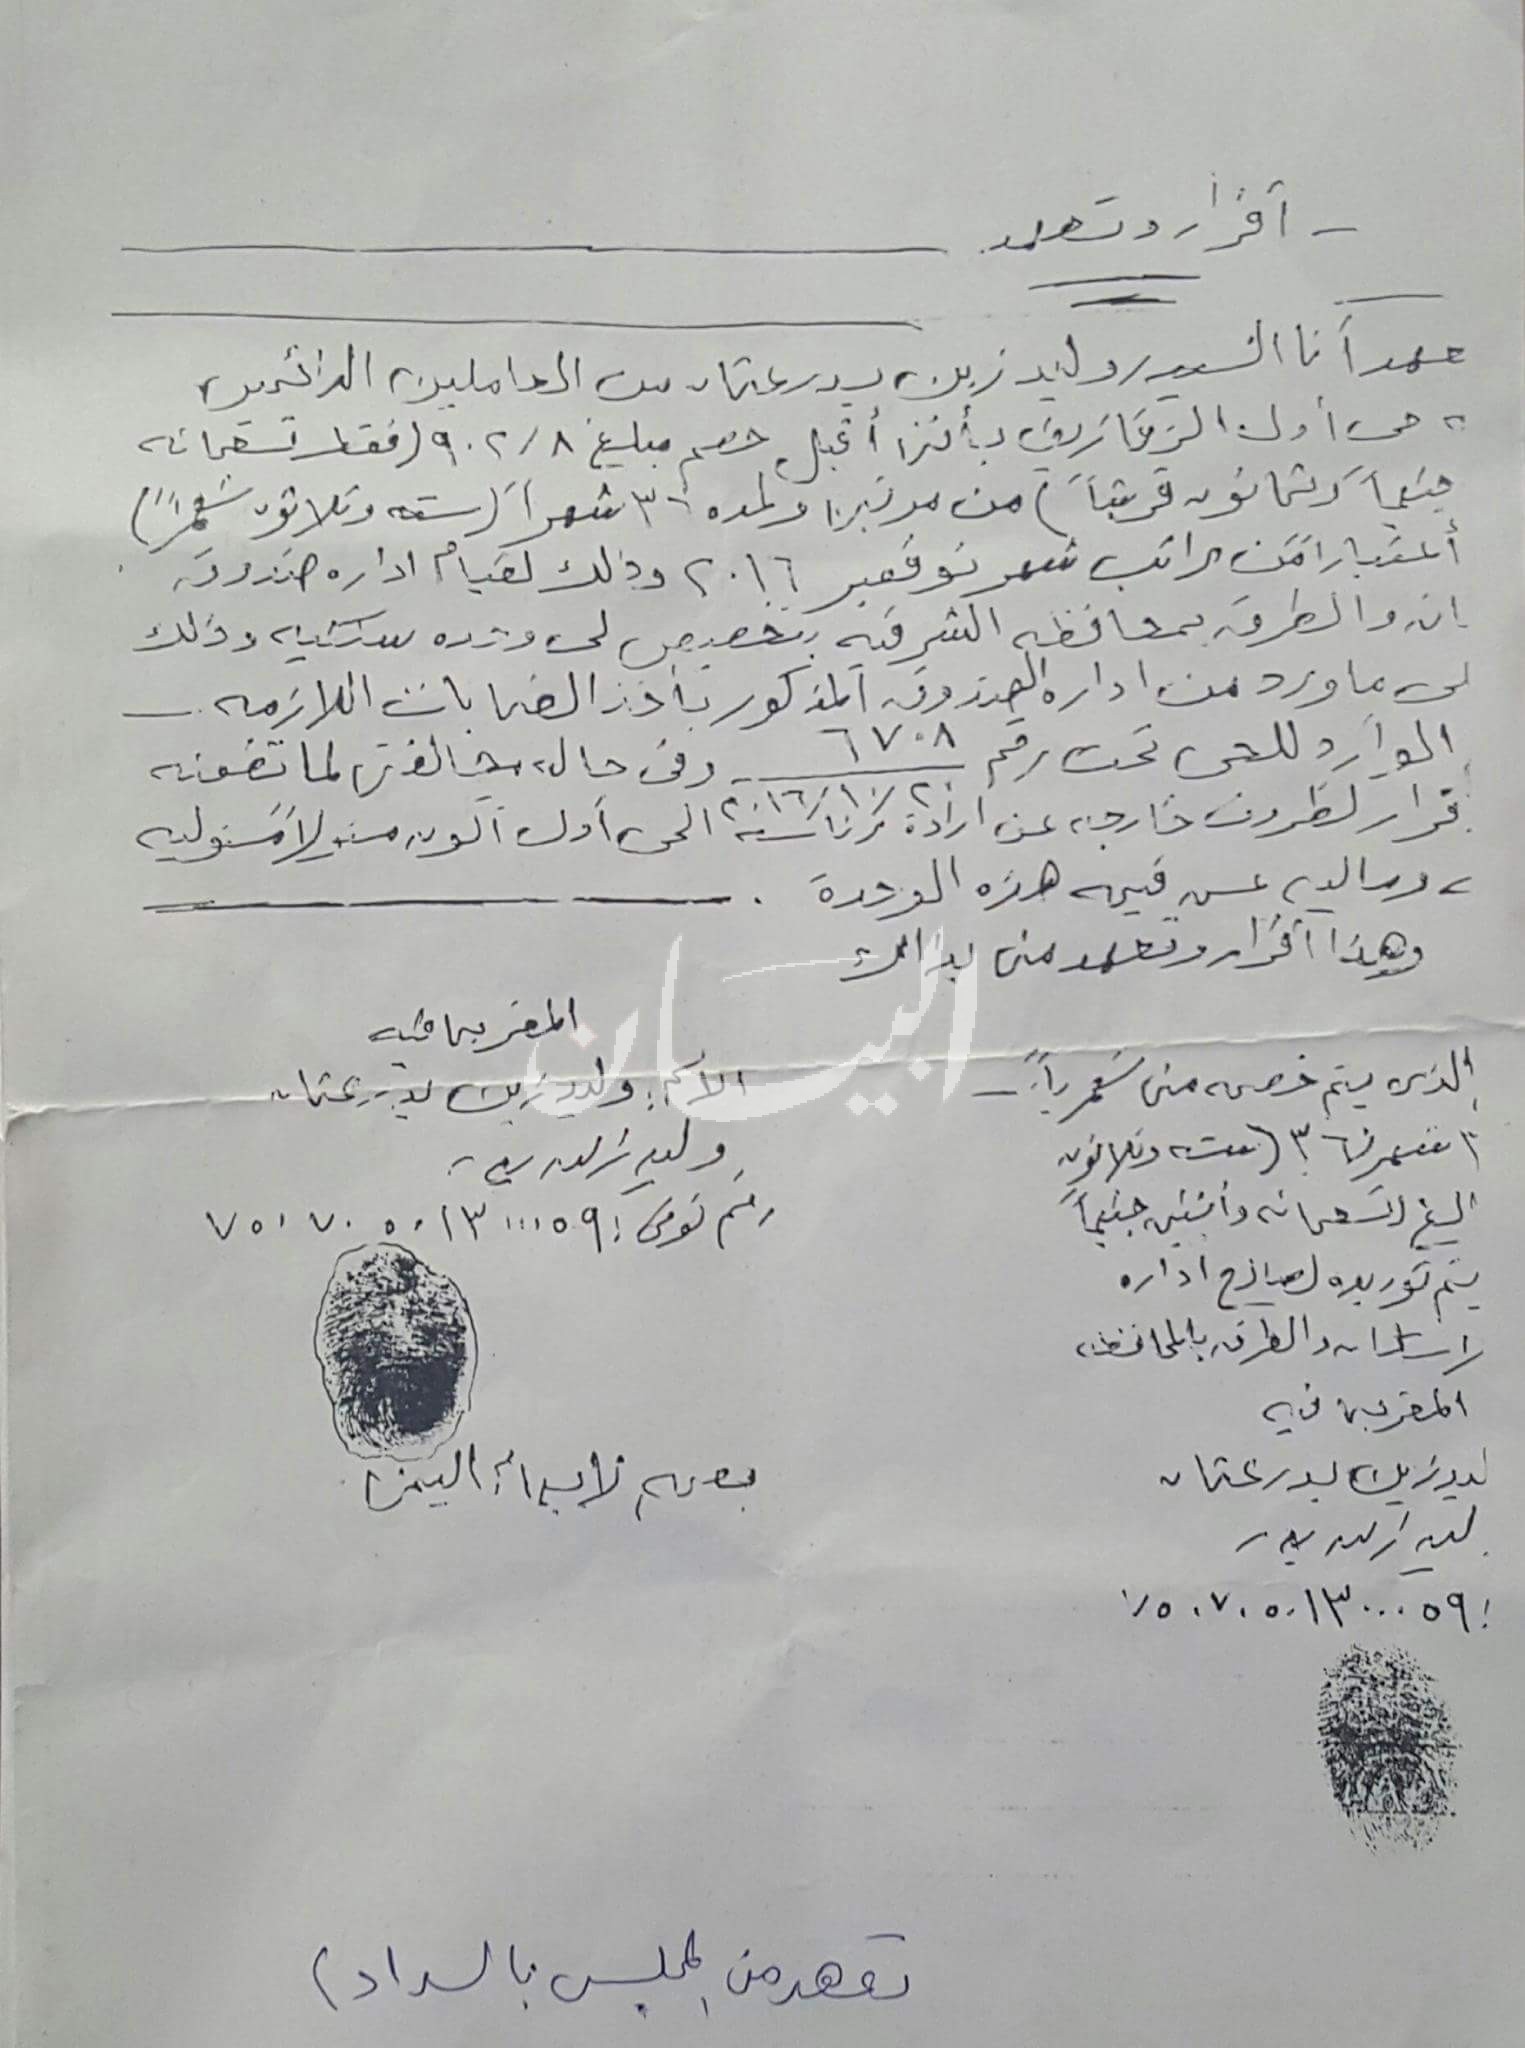 - أقرار وتعهد
تعهد أنا السيد / وليد زين بدر عثمان من العاملين الدائمين
حى أول الزقازيق بأننى أقبل خصم مبلغ ٩٠٢/٨ (فقط تسعمائه
جنيهاً وثمانون قرشاً) من مرتبى ولمده ٣٦ شهراً (سته وثلاثون شهراً)
أعتباراً من راتب شهر نوفمبر ٢٠١٦ وذلك لقيام اداره صندوق
ان والطرق بمحافظه الشرقيه بتخصيص لى وحده سكنيه وذلك
لى ما ورد من اداره الصندوق المذكور بأخذ الضمانات اللازمه
الوارد للحى تحت رقم ٦٧٠٨ وفى حاله مخالفتى لما تضمنه
٢٠١٦/١٠/٢
قرار لظروف خارجه عن أرادة رئاسة الحى أول أكون مسئوليه
وماليه عن قيمه هذه الوحدة .
وهذا أقرار وتعهد منى بذلك
المقر بما فيه
الأسم: وليد زين بدر عثمان
وليد زين بدر
رقم قومى: ٧٥٠٧٠٥٠١٣٠٠٠٥٩
بصمه الابهام اليمنى
الذى يتم خصمه منى شهرياً
٣٦ (سته وثلاثون
تسعمائه وأثنين جنيهاً
يتم توريده لصالح اداره
الاسكان والطرق بالمحافظه
المقر بما فيه
ليد زين بدر عثمان
ليد زين بدر
: ٧٥٠٧٠٥٠١٣٠٠٠٥٩
تعهد من المجلس بالسداد)
البيان